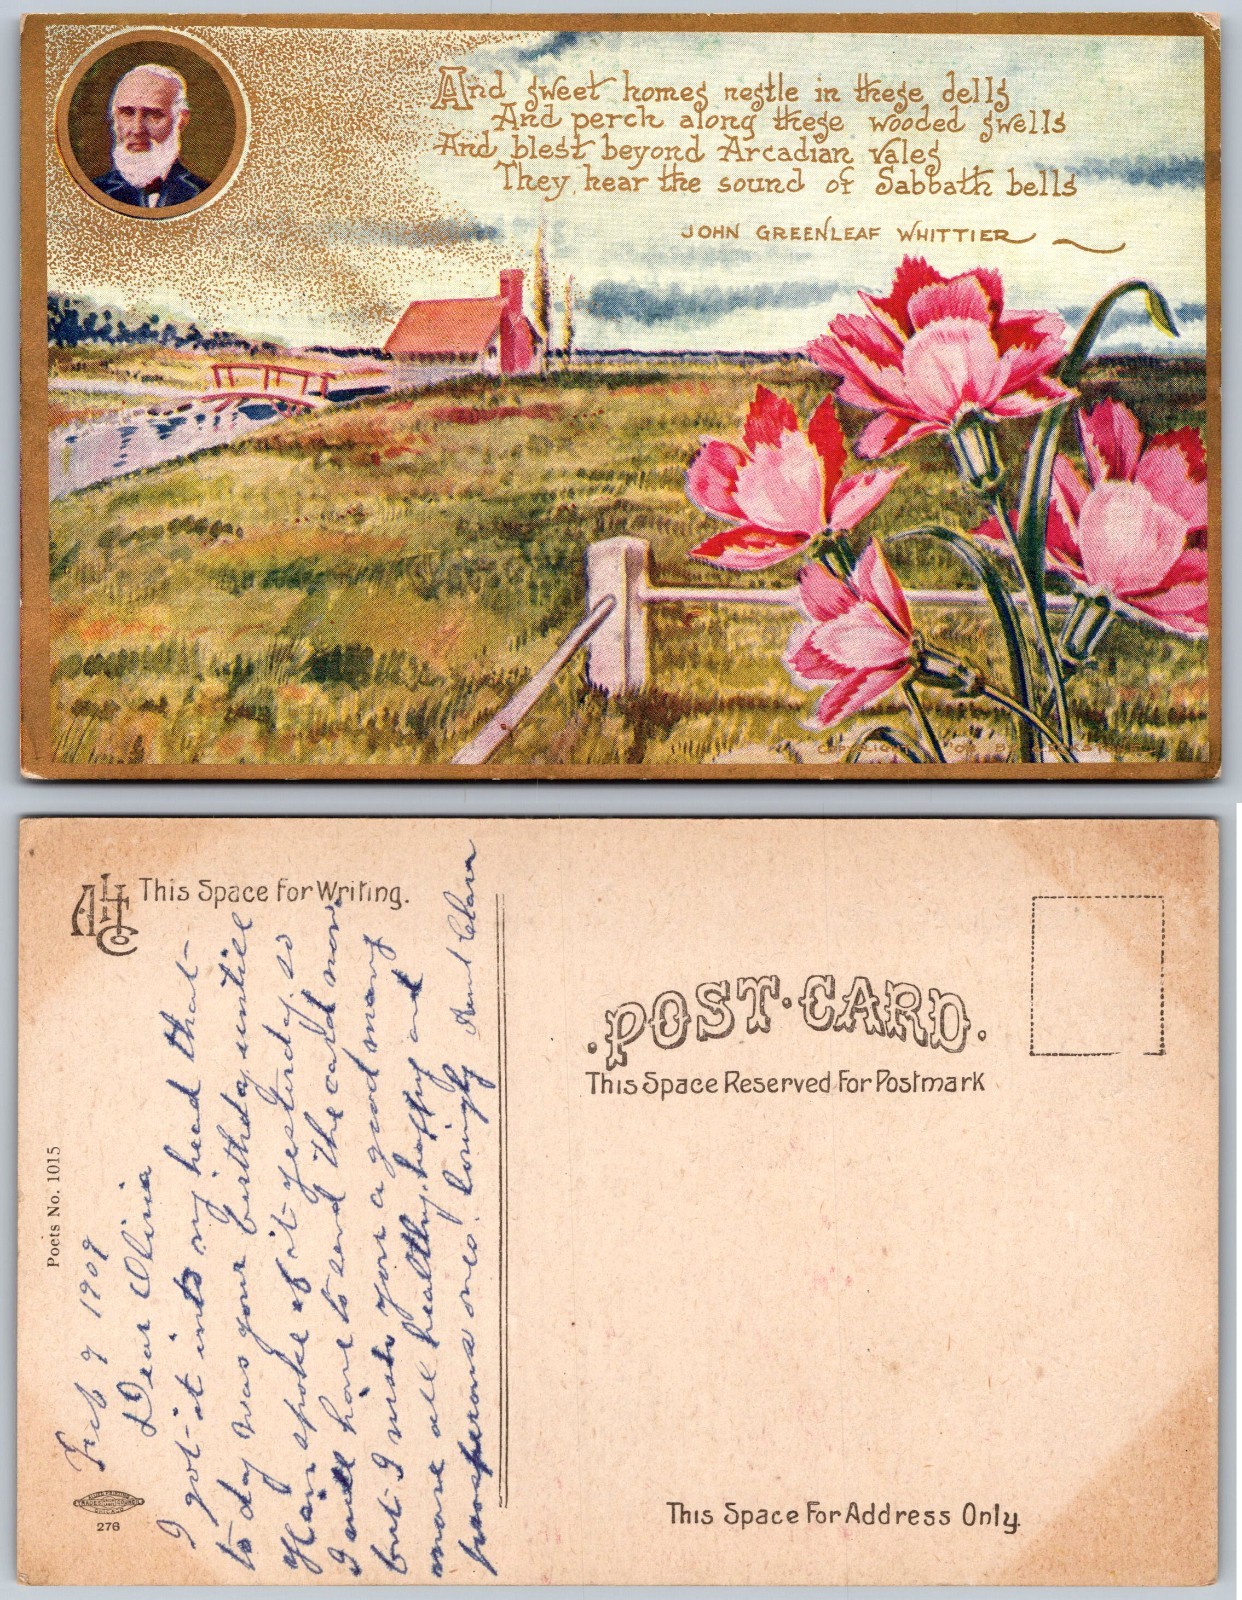 And sweet homes nestle in these dells
And perch along these wooded swells
And blest beyond Arcadian vales
They hear the sound of Sabbath bells
JOHN GREENLEAF WHITTIER
COPYRIGHT
ALH Co
This Space For Writing.
POST·CARD.
This Space Reserved For Postmark
This Space For Address Only.
Poets No. 1015
276
Feb 9 1909
Dear Olivia
I got it into my head that
to day was your birthday, untill
spoke of it yesterday, so
I will have to send the card now
but I wish you a good many
more all healthy, happy and
prosperous ones. lovingly Aunt Clara